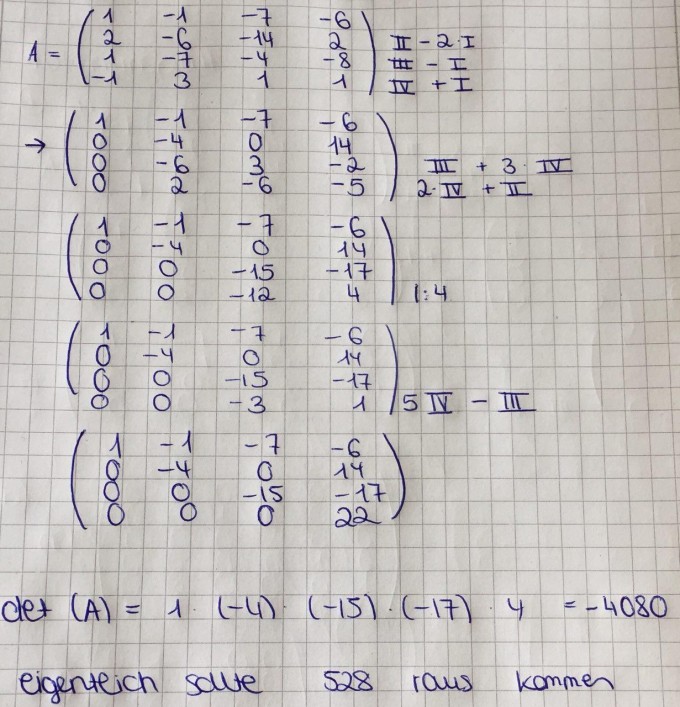 1 -1 -7 -6
A = 2 -6 -14 2 II - 2·I
1 -7 -4 -8 III - I
-1 3 1 1 IV + I
1 -1 -7 -6
→ 0 -4 0 14
0 -6 3 -2 III + 3·IV
0 2 -6 -5 2·IV + II
1 -1 -7 -6
0 -4 0 14
0 0 -15 -17
0 0 -12 4 |:4
1 -1 -7 -6
0 -4 0 14
0 0 -15 -17
0 0 -3 1 5 IV - III
1 -1 -7 -6
0 -4 0 14
0 0 -15 -17
0 0 0 22
det (A) = 1 · (-4) · (-15) · (-17) · 4 = -4080
eigenteich sollte 528 raus kommen